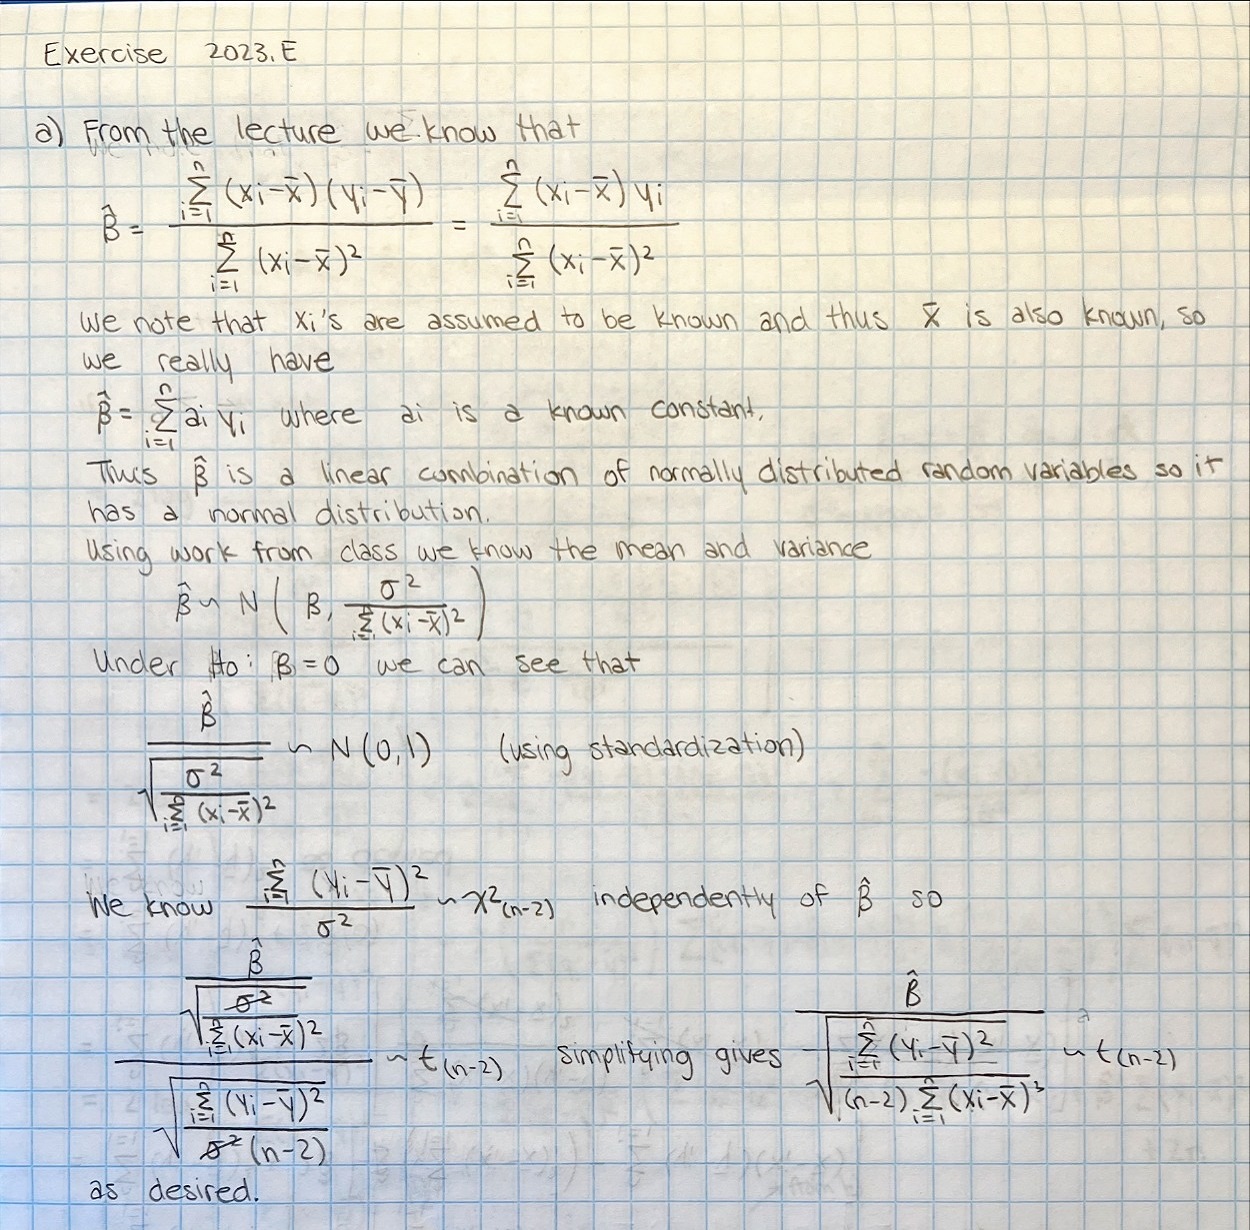 Exercise 2023.E
a) From the lecture we know that
β̂ = \frac{\sum_{i=1}^{n} (x_i - x̄)(y_i - ȳ)}{\sum_{i=1}^{n} (x_i - x̄)^2} = \frac{\sum_{i=1}^{n} (x_i - x̄) y_i}{\sum_{i=1}^{n} (x_i - x̄)^2}
we note that x_i's are assumed to be known and thus x̄ is also known, so
we really have
β̂ = \sum_{i=1}^{n} a_i y_i where a_i is a known constant.
Thus β̂ is a linear combination of normally distributed random variables so it
has a normal distribution.
Using work from class we know the mean and variance
β̂ ~ N ( β, \frac{σ^2}{\sum_{i=1}^{n} (x_i - x̄)^2} )
Under H_0: β = 0 we can see that
\frac{β̂}{\sqrt{\frac{σ^2}{\sum_{i=1}^{n} (x_i - x̄)^2}}} ~ N(0,1) (using standardization)
We know \frac{\sum_{i=1}^{n} (y_i - ȳ)^2}{σ^2} ~ χ^2_{(n-2)} independently of β̂ so
\frac{\frac{β̂}{\sqrt{\frac{σ^2}{\sum_{i=1}^{n} (x_i - x̄)^2}}}}{\sqrt{\frac{\sum_{i=1}^{n} (y_i - ȳ)^2}{σ^2 (n-2)}}} ~ t_{(n-2)} simplifying gives \frac{β̂}{\sqrt{\frac{\sum_{i=1}^{n} (y_i - ȳ)^2}{(n-2) \sum_{i=1}^{n} (x_i - x̄)^2}}} ~ t_{(n-2)}
as desired.